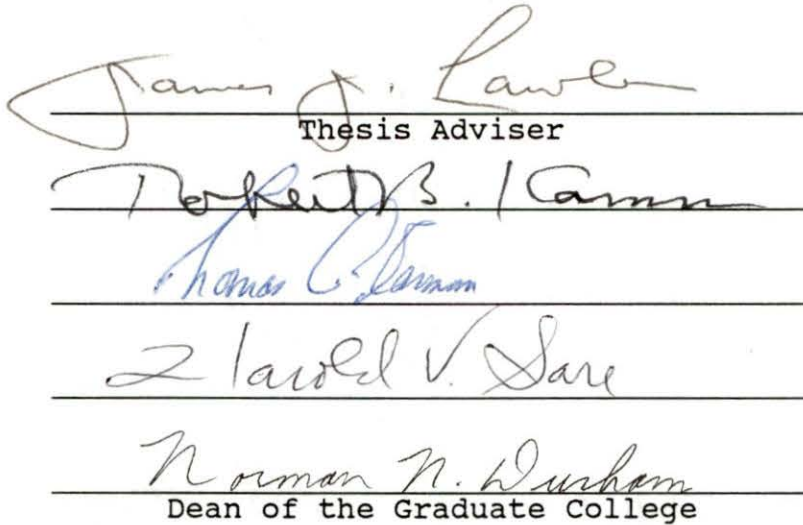 James J. Lawler
Thesis Adviser
Robert B. Kamm
Thomas C. Harman
Harold V. Sare
Norman N. Durham
Dean of the Graduate College